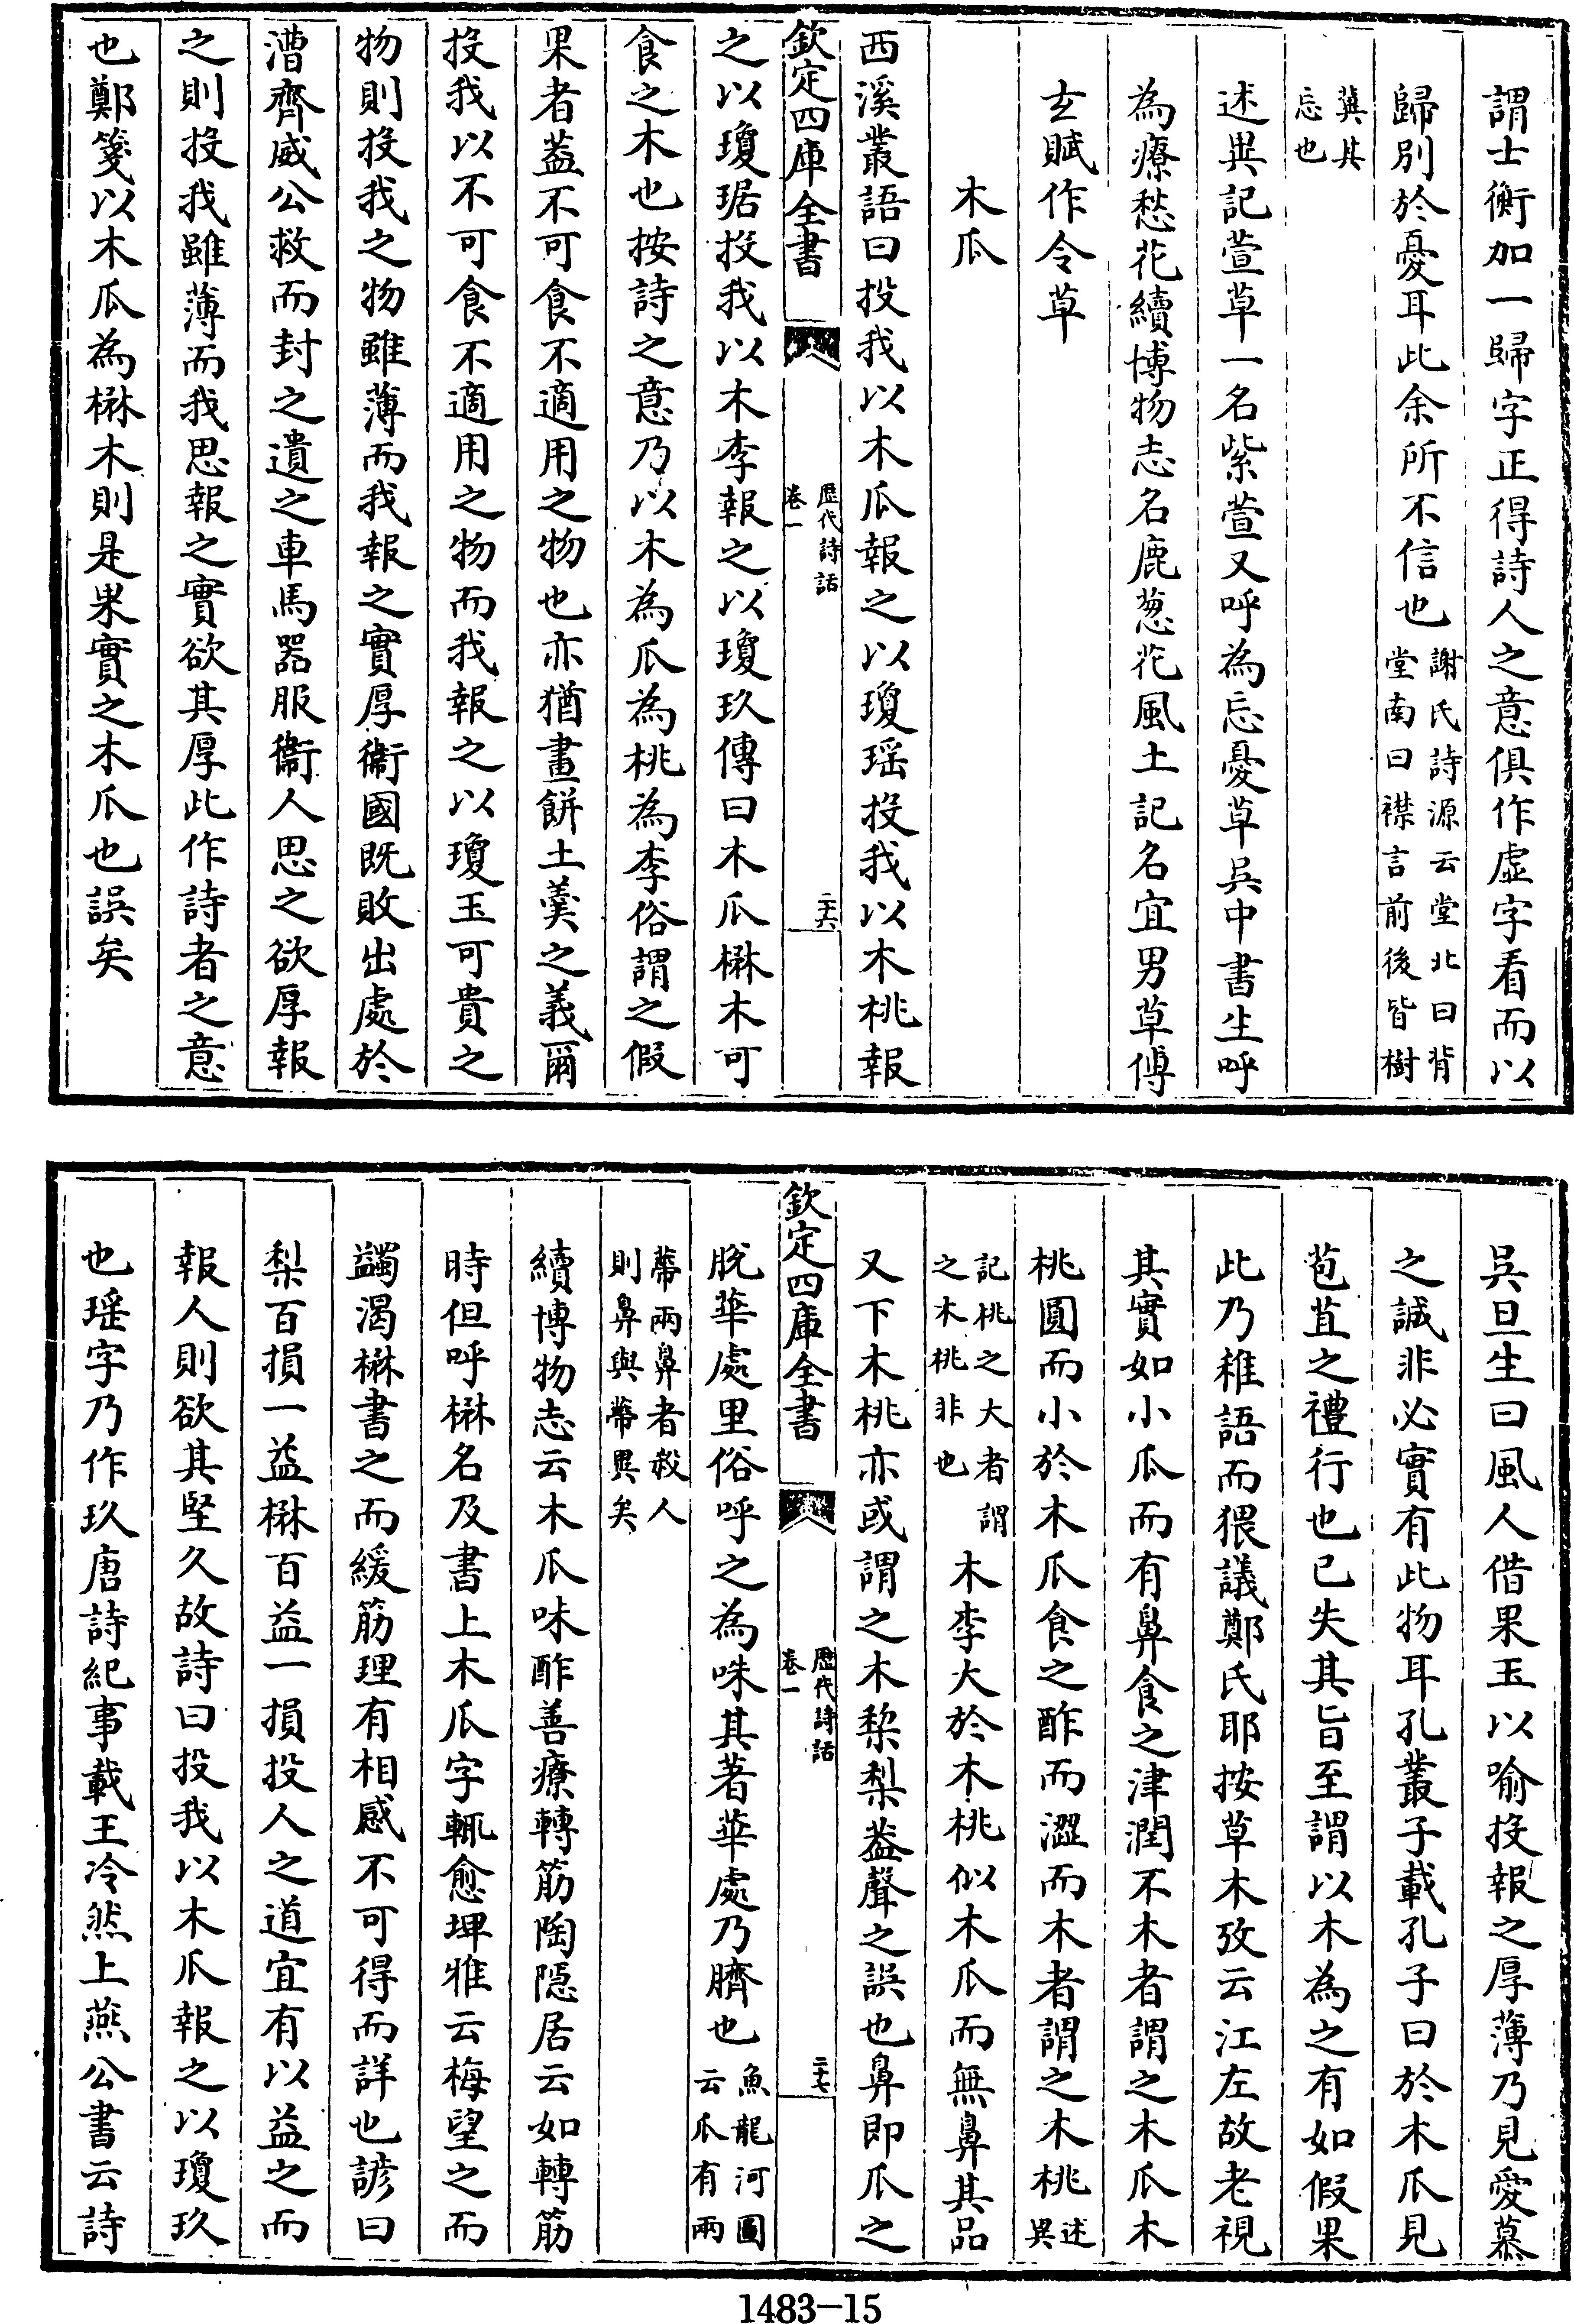 謂士衡加一歸字正得詩人之意俱作虛字看而以
歸別於憂耳此余所不信也謝氏詩源云堂北曰背堂南曰襟言前後皆樹
冀其忘也
述異記萱草一名紫萱又呼為忘憂草吳中書生呼
為療愁花續博物志名鹿葱花風土記名宜男草傅
玄賦作令草
木瓜
西溪叢語曰投我以木瓜報之以瓊瑶投我以木桃報
欽定四庫全書 歷代詩話 卷一 二十六
之以瓊琚投我以木李報之以瓊玖傳曰木瓜楙木可
食之木也按詩之意乃以木為瓜為桃為李俗謂之假
果者葢不可食不適用之物也亦猶畫餅土羹之義爾
投我以不可食不適用之物而我報之以瓊玉可貴之
物則投我之物雖薄而我報之實厚衞國既敗出處於
漕齊威公救而封之遺之車馬器服衞人思之欲厚報
之則投我雖薄而我思報之實欲其厚此作詩者之意
也鄭箋以木瓜為楙木則是果實之木瓜也誤矣
吳旦生曰風人借果玉以喻投報之厚薄乃見愛慕
之誠非必實有此物耳孔叢子載孔子曰於木瓜見
苞苴之禮行也已失其旨至謂以木為之有如假果
此乃稚語而猥議鄭氏耶按草木攷云江左故老視
其實如小瓜而有鼻食之津潤不木者謂之木瓜木
桃圓而小於木瓜食之酢而澀而木者謂之木桃述異
記桃之大者謂之木桃非也木李大於木桃似木瓜而無鼻其品
又下木桃亦或謂之木棃梨葢聲之誤也鼻即瓜之
欽定四庫全書 歷代詩話 卷一 二十七
脫華處里俗呼之為咮其著華處乃臍也魚龍河圖云瓜有兩
蔕兩鼻者殺人則鼻與蔕異矣
續博物志云木瓜味酢善療轉筋陶隠居云如轉筋
時但呼楙名及書上木瓜字輒愈埤雅云梅望之而
蠲渴楙書之而緩筋理有相感不可得而詳也諺曰
梨百損一益楙百益一損投人之道宜有以益之而
報人則欲其堅久故詩曰投我以木瓜報之以瓊玖
也瑶字乃作玖唐詩紀事載王冷然上燕公書云詩
1483-15